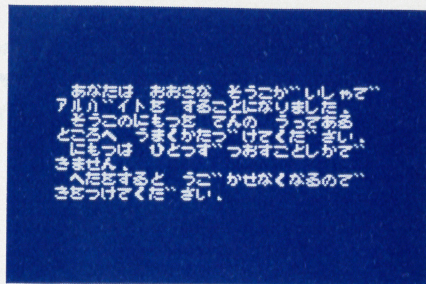 あなたは　おおきな　そうこがいしゃで
アルバイトを　することになりました。
そうこのにもつを　てんの　うってある
ところへ　うまくかたづけてください。
にもつは　ひとつずつおすことしかで
きません。
へたをすると　うごかせなくなるので
きをつけてください。